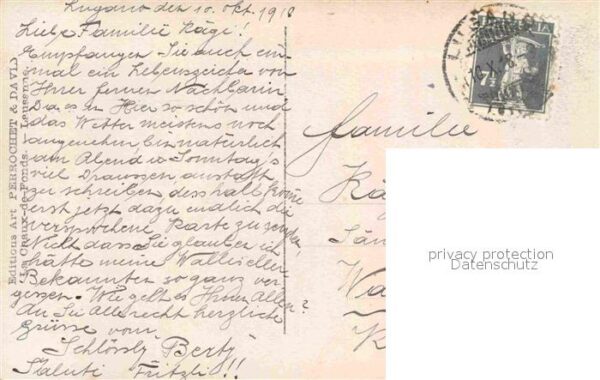 Lugano den 10. Okt. 1918
Liebe Familie Kägi!
Empfangen Sie auch ein
mal ein Lebenszeichen von
Ihrer fernen Nachbarin
Da es in Hier so schön und
das Wetter meistens noch
angenehm, bin natürlich
am Abend u. Sonntag's
viel Draussen anstatt
zu schreiben, desshalb komme
erst jetzt dazu endlich die
versprochene Karte zu senden,
Nicht dass Sie glauben ich
hätte meine Walliseller
Bekannten so ganz ver-
gessen. Wie geht es Ihnen Allen?
An Sie Alle recht herzliche
grüsse vom
Schlössly Berty
Saluti Fritzli!!
Editions Art PERROCHET & DAVID
La Chaux-de-Fonds. - Lausanne.
Familie
Kä
Wa
K
LUGANO
7½
privacy protection
Datenschutz